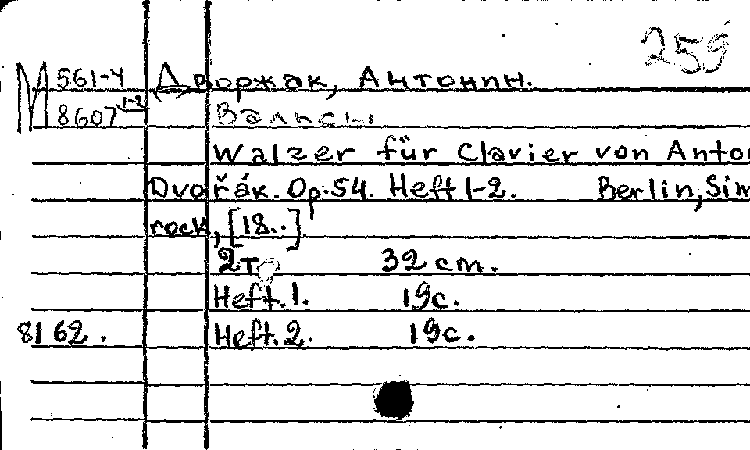 259
М 561-4 Дворжак, Антонин.
8607 1-2 Вальсы
Walzer für Clavier von Anto
Dvořák. Op. 54. Heft 1-2. Berlin, Sim
rock, [18..]
2 т. 32 cm.
Heft. 1. 19 с.
8162. Heft. 2. 19 с.